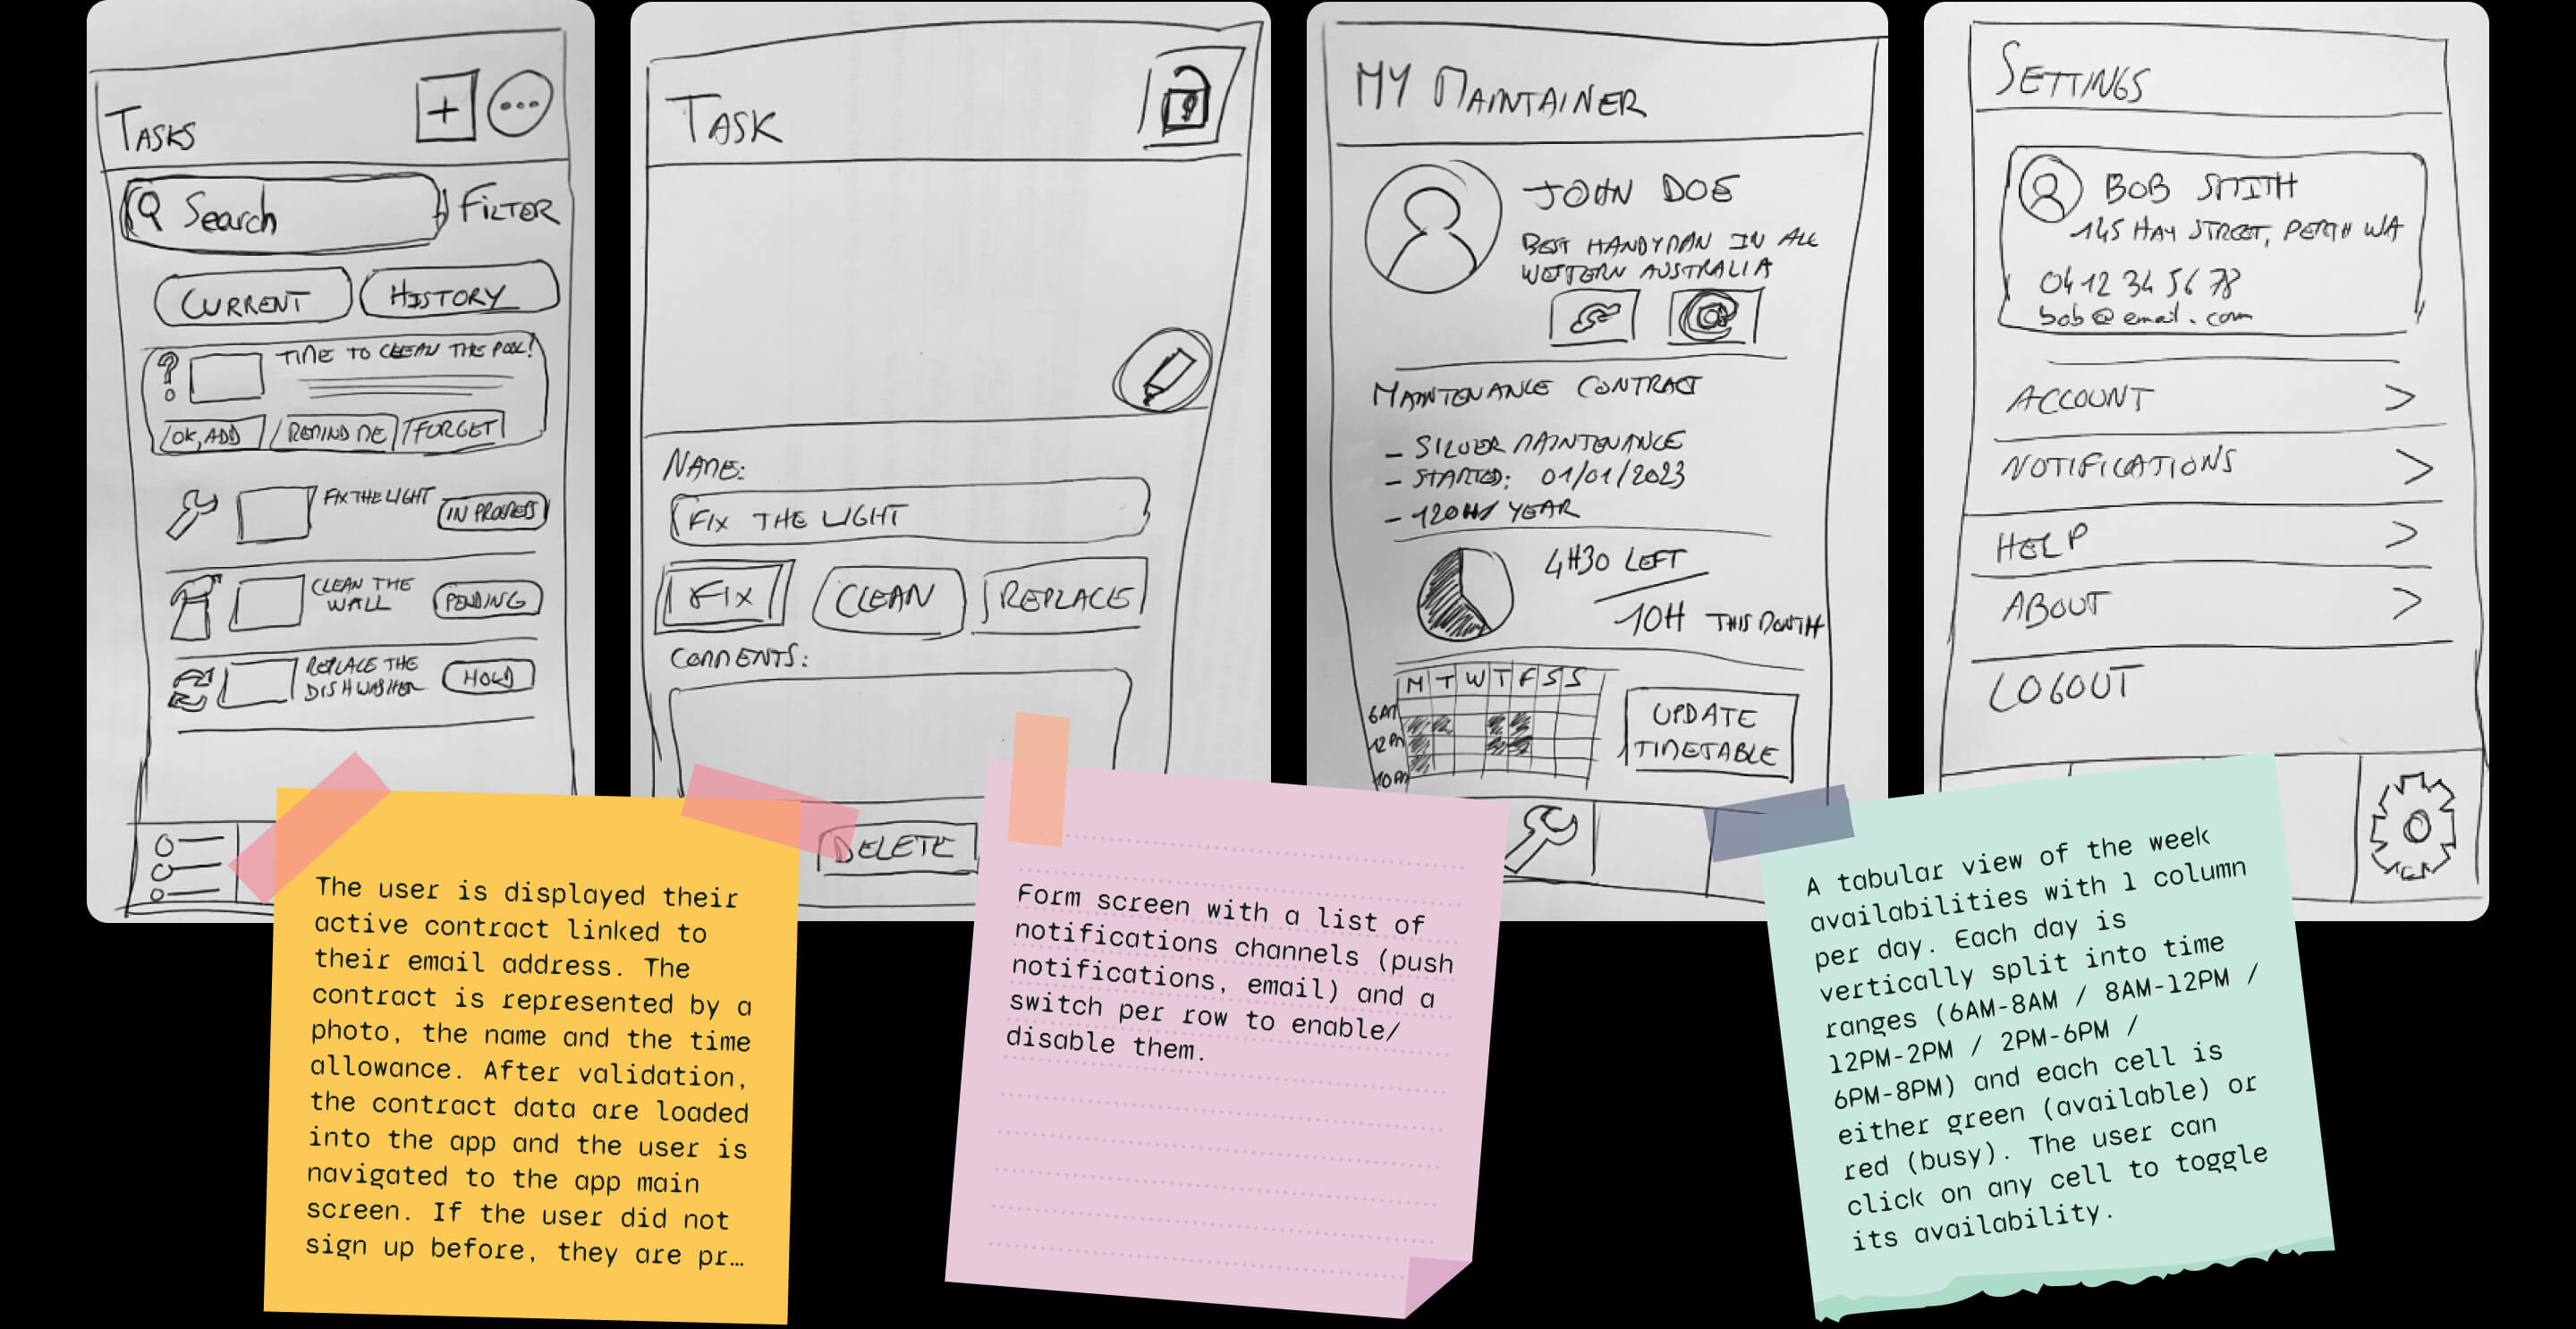 TASKS
+
Search
FILTER
CURRENT
HISTORY
?
TIME TO CLEAN THE POOL!
OK, ADD
REMIND ME
FORGET
FIX THE LIGHT
IN PROGRESS
CLEAN THE
WALL
PENDING
REPLACE THE
DISHWASHER
HOLD
TASK
NAME:
FIX THE LIGHT
FIX
CLEAN
REPLACE
COMMENTS:
DELETE
MY MAINTAINER
JOHN DOE
BEST HANDYMAN IN ALL
WESTERN AUSTRALIA
@
MAINTENANCE CONTRACT
- SILVER MAINTENANCE
- STARTED: 01/01/2023
- 120H/YEAR
4H30 LEFT
10H THIS MONTH
M T W T F S S
6AM
12PM
10PM
UPDATE
TIMETABLE
SETTINGS
BOB SMITH
145 HAY STREET, PERTH WA
04 12 34 56 78
bob@email.com
ACCOUNT >
NOTIFICATIONS >
HELP >
ABOUT >
LOGOUT
The user is displayed their
active contract linked to
their email address. The
contract is represented by a
photo, the name and the time
allowance. After validation,
the contract data are loaded
into the app and the user is
navigated to the app main
screen. If the user did not
sign up before, they are pr…
Form screen with a list of
notifications channels (push
notifications, email) and a
switch per row to enable/
disable them.
A tabular view of the week
availabilities with 1 column
per day. Each day is
vertically split into time
ranges (6AM-8AM / 8AM-12PM /
12PM-2PM / 2PM-6PM /
6PM-8PM) and each cell is
either green (available) or
red (busy). The user can
click on any cell to toggle
its availability.